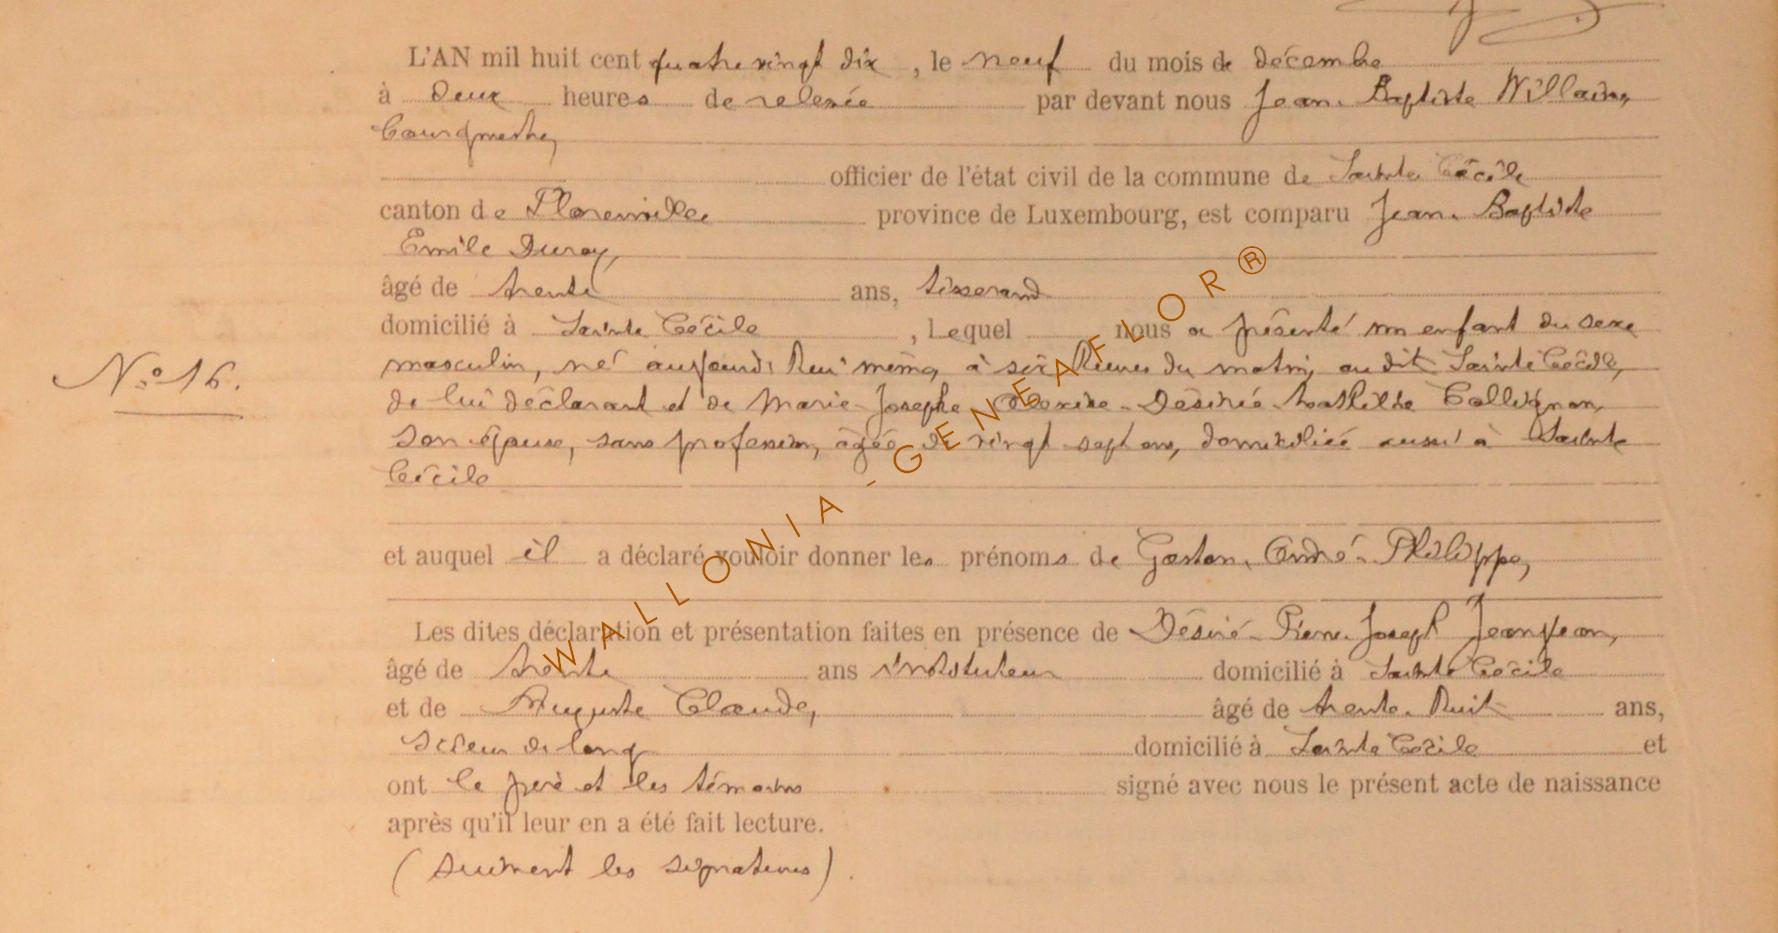 L'AN mil huit cent quatre vingt dix, le neuf du mois de décembre
à deux heures de relevée par devant nous Jean-Baptiste Willaime,
bourgmestre,
officier de l'état civil de la commune de Sainte Cécile
canton de Florenville province de Luxembourg, est comparu Jean-Baptiste
Emile Duroy,
âgé de trente ans, tisserand
domicilié à Sainte Cécile, Lequel nous a présenté un enfant du sexe
N° 16. masculin, né aujourd'hui même, à six heures du matin, au dit Sainte Cécile,
de lui déclarant et de Marie-Josephe Désirée Collignon,
son épouse, sans profession, âgée de vingt sept ans, domiciliée aussi à Sainte
Cécile
et auquel il a déclaré vouloir donner les prénoms de Gaston-André-Philippe,
Les dites déclaration et présentation faites en présence de Désiré-Pierre-Joseph Jeanjean,
âgé de trente ans instituteur domicilié à Sainte Cécile
et de Auguste Claude, âgé de trente-huit ans,
scieur de long domicilié à Sainte Cécile et
ont le père et les témoins signé avec nous le présent acte de naissance
après qu'il leur en a été fait lecture.
(suivent les signatures).
WALLONIA-GENEAFLOR®